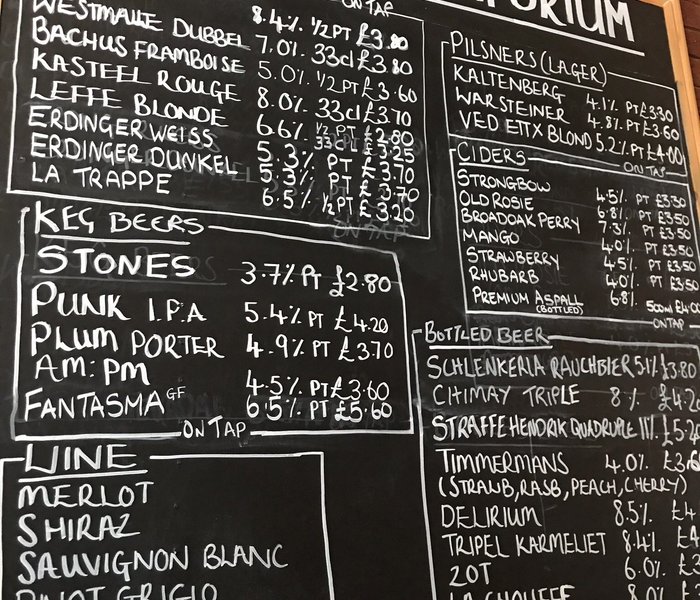 ON TAP
WESTMALLE DUBBEL 8.4% ½PT £3.80
BACHUS FRAMBOISE 7.0% 33cl £3.80
KASTEEL ROUGE 5.0% ½PT £3.60
LEFFE BLONDE 8.0% 33cl £3.70
ERDINGER WEISS 6.6% ½PT £2.80
ERDINGER DUNKEL 5.3% 33cl £3.25
LA TRAPPE 5.3% PT £3.70
PT £3.70
6.5% ½PT £3.20
KEG BEERS
STONES 3.7% PT £2.80
PUNK I.P.A 5.4% PT £4.20
PLUM PORTER 4.9% PT £3.70
AM:PM 4.5% PT £3.60
FANTASMA GF 6.5% PT £5.60
ON TAP
WINE
MERLOT
SHIRAZ
SAUVIGNON BLANC
PINOT GRIGIO
PILSNERS (LAGER)
KALTENBERG 4.1% PT £3.30
WARSTEINER 4.8% PT £3.60
VEDETTX BLOND 5.2% PT £4.00
ON TAP
CIDERS
STRONGBOW 4.5% PT £3.30
OLD ROSIE 6.8% PT £3.50
BROADOAK PERRY 7.3% PT £3.50
MANGO 4.0% PT £3.50
STRAWBERRY 4.5% PT £3.50
RHUBARB 4.0% PT £3.50
PREMIUM ASPALL 6.8% 500ml £4.00
(BOTTLED)
ON TAP
BOTTLED BEER
SCHLENKERLA RAUCHBIER 5.1% £3.80
CHIMAY TRIPLE 8% £4.20
STRAFFE HENDRIK QUADRUPLE 11% £5.20
TIMMERMANS 4.0% £3.60
(STRAWB, RASB, PEACH, CHERRY)
DELIRIUM 8.5% £4
TRIPEL KARMELIET 8.4% £4
ZOT 6.0% £3
LA CHOUFFE 8.0% £